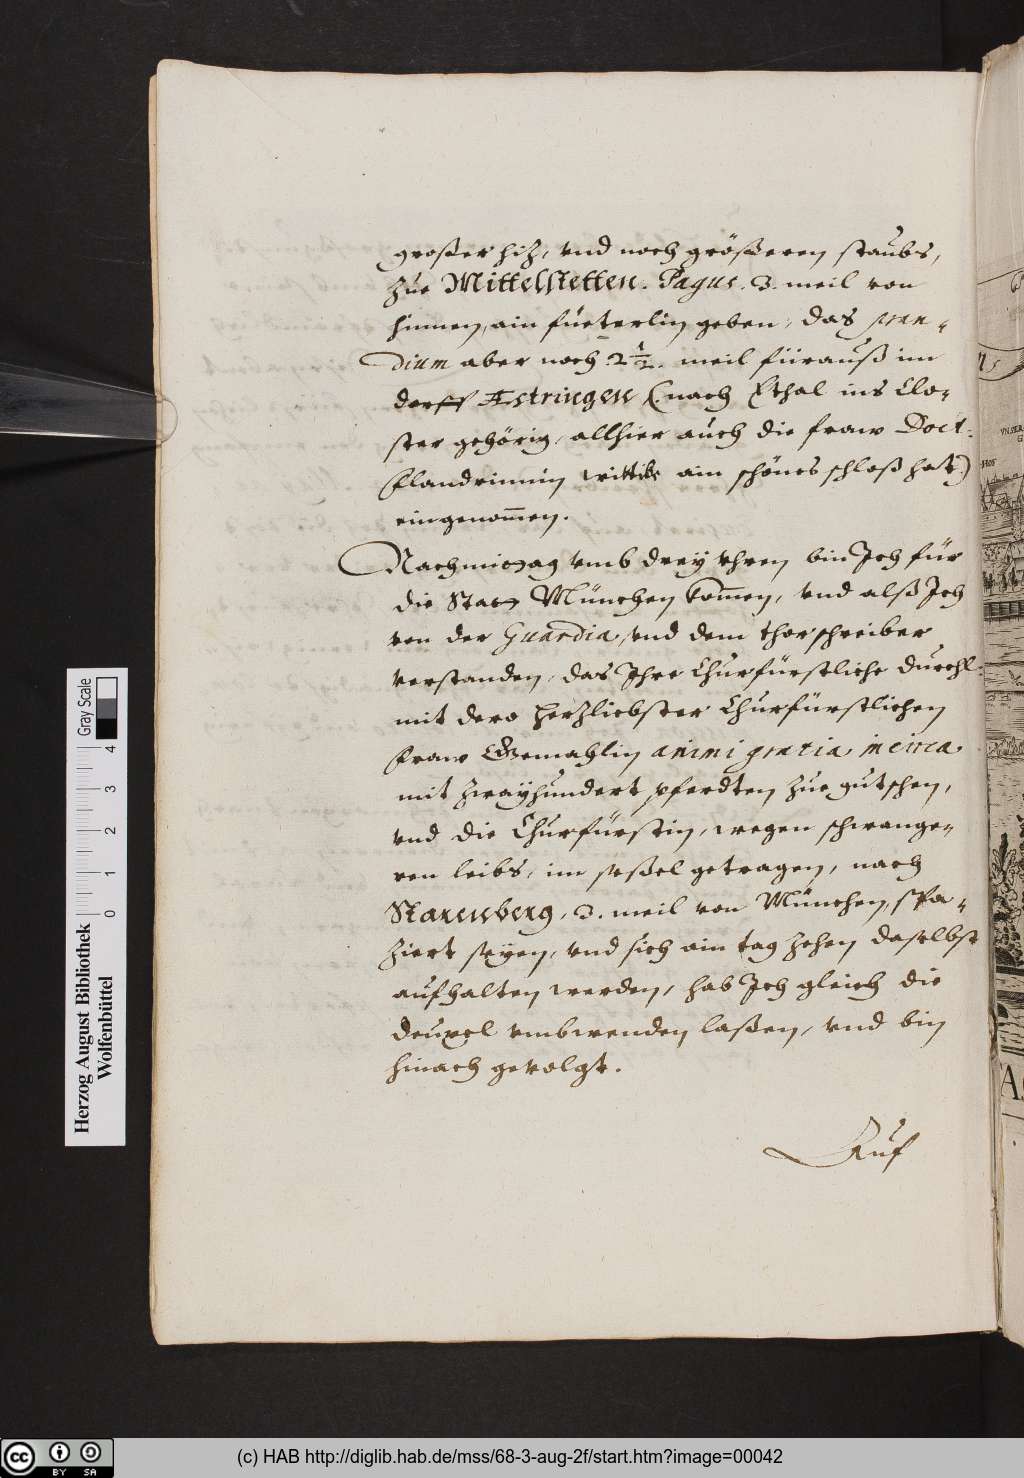 großer hiz, vnd noch größeren staubs,
zue Mittelstetten. Pagus. 3. meil von
hinnen, ain fueterlin geben, das pran-
dium aber noch 2 1/2. meil fürauß im
dorff Æstringen (nach Ethal ins Clo-
ster gehörig, allhier auch die fraw Doct:
Flandrinnin wittibe ain schönes schloß hat)
eingenom̄en.
Nachmittag vmb drey vhren bin Jch für
die Statt München kom̄en, vnd alß Jch
von der Guardia, vnd dem thorschreiber
verstanden, das Jhre Churfürstliche Durchl.
mit dero herzliebster Churfürstlichen
Fraw Gemahlin animi gratia, in circa
mit zwayhundert pferdten zue gutschen,
vnd die Churfürstin, wegen schwange-
ren leibs, im seßel getragen, nach
Starenberg, 3. meil von München, spa-
ziert seyen, vnd sich ain tag zehen daselbst
aufhalten werden, hab Jch gleich die
deuxel vmbwenden laßen, vnd bin
hinach gevolgt.
Auf
Herzog August Bibliothek
Wolfenbüttel
0 1 2 3 4
Gray Scale
cc BY SA
(c) HAB http://diglib.hab.de/mss/68-3-aug-2f/start.htm?image=00042